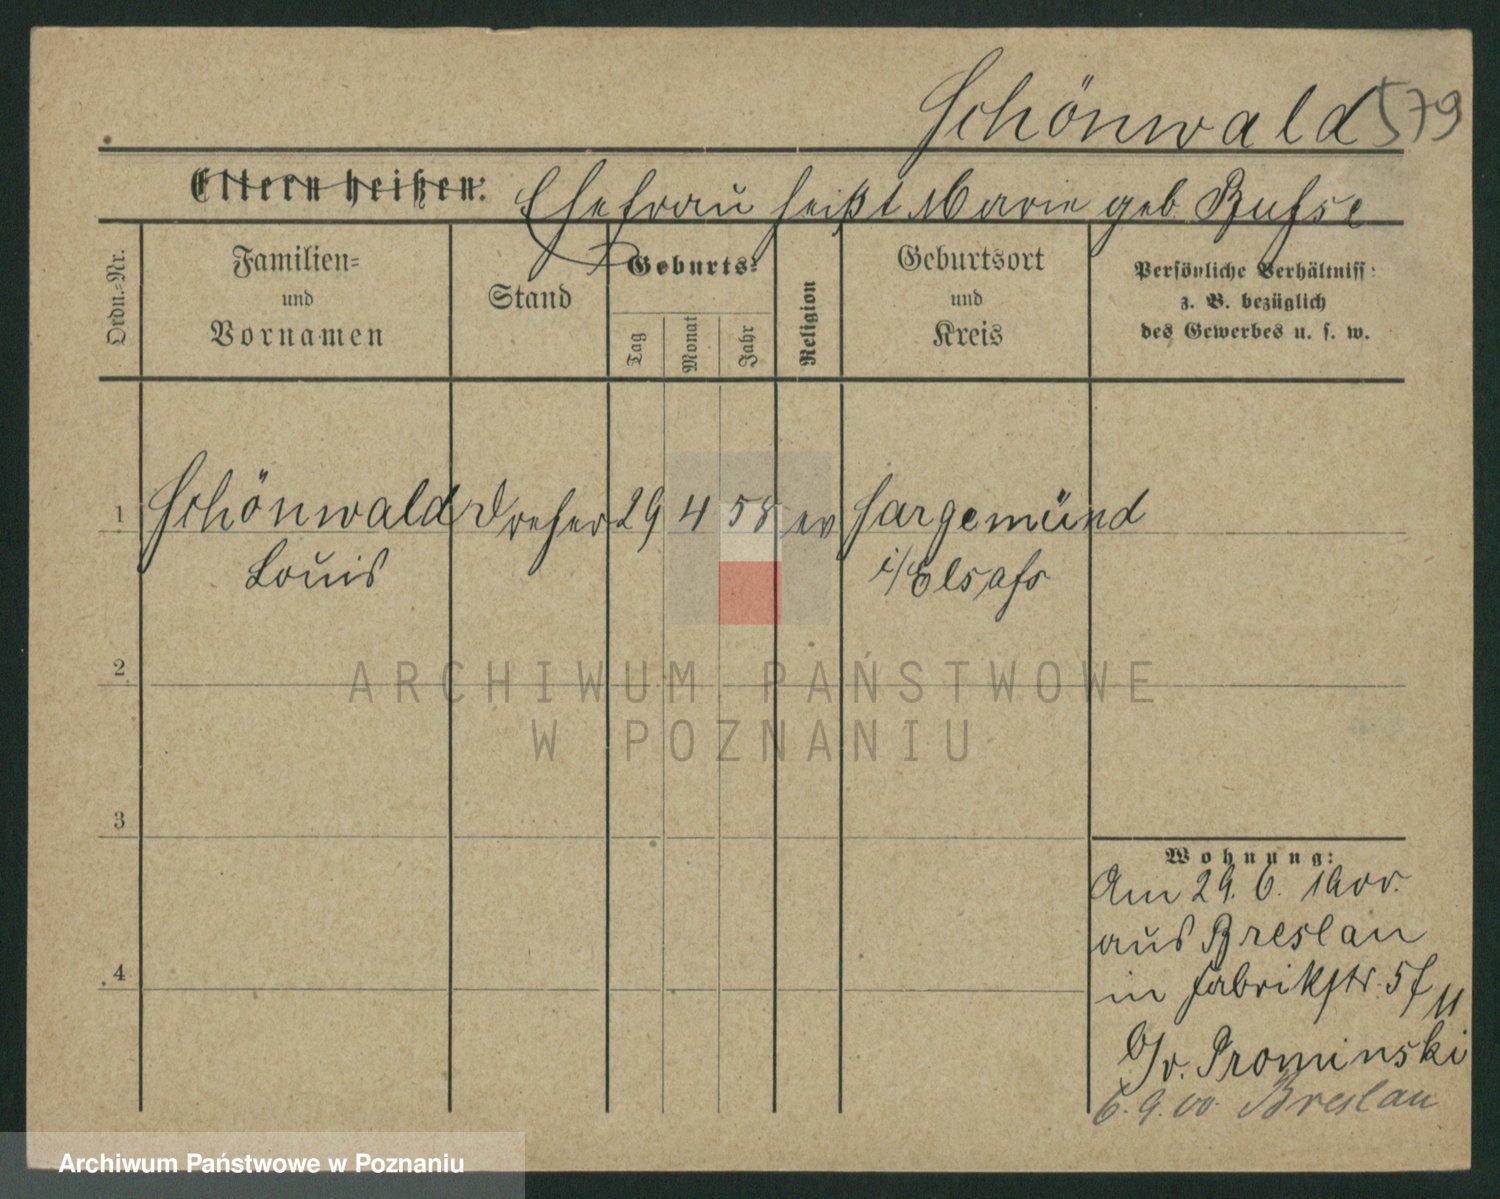 Schönwald 579
Eltern heißen: Ehefrau heißt Marie geb Busse
Ordn.-Nr.
Familien-
und
Vornamen
Stand
Geburts-
Tag
Monat
Jahr
Religion
Geburtsort
und
Kreis
Persönliche Verhältniss:
z. B. bezüglich
des Gewerbes u. s. w.
1 Schönwald Dreher 29 4 58 ev Sargemünd
Louis i/Elsass
2
ARCHIWUM PAŃSTWOWE
W POZNANIU
3
Wohnung:
Am 29. 6. 1900.
aus Breslau
4
in Fabrikstr. 5
b/v. Prominski
6. 9. 00 Breslau
Archiwum Państwowe w Poznaniu